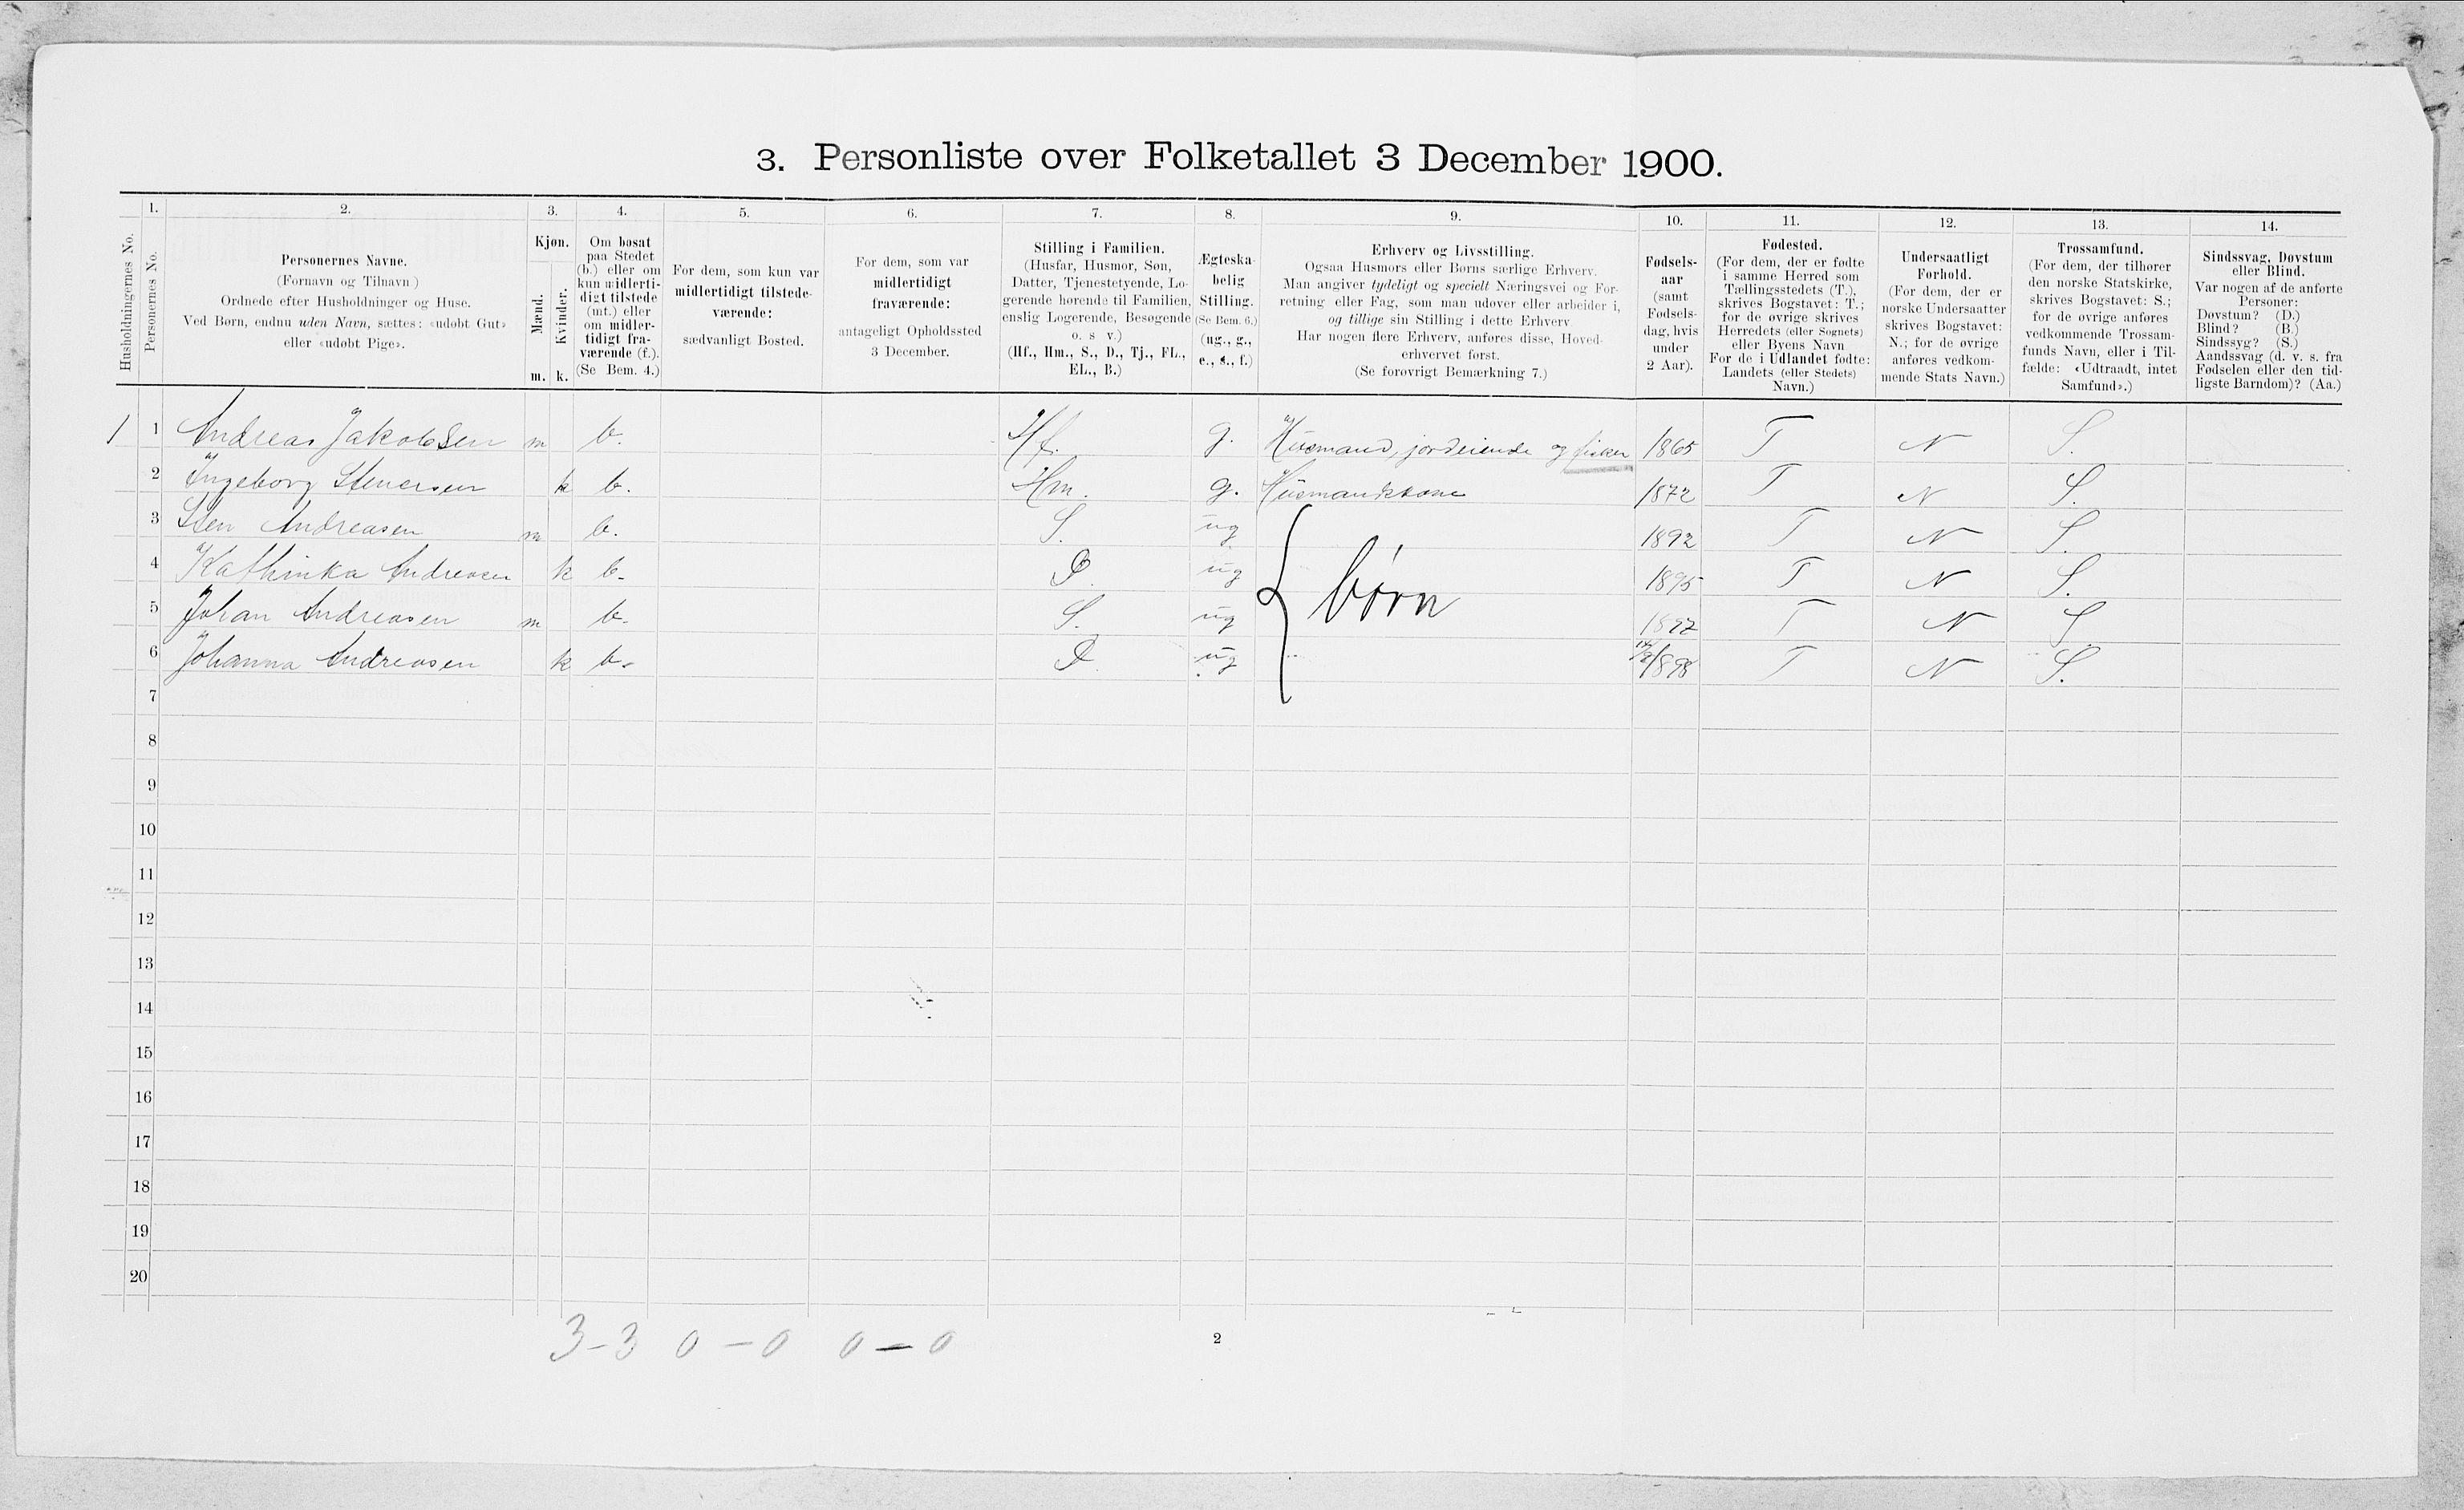 3. Personliste over Folketallet 3 December 1900.
Husholdningernes No.
1.
Personernes No.
2.
Personernes Navne.
(Fornavn og Tilnavn)
Ordnede efter Husholdninger og Huse.
Ved Børn, endnu uden Navn, sættes: «udøbt Gut»
eller «udøbt Pige».
3.
Kjøn.
Mænd.
Kvinder.
m. k.
4.
Om bosat
paa Stedet
(b.) eller om
kun midlerti-
digt tilstede
(mt.) eller
om midler-
tidigt fra-
værende (f.).
(Se Bem. 4.)
5.
For dem, som kun var
midlertidigt tilstede-
værende:
sædvanligt Bosted.
6.
For dem, som var
midlertidigt
fraværende:
antageligt Opholdssted
3 December.
7.
Stilling i Familien.
(Husfar, Husmor, Søn,
Datter, Tjenestetyende, Lo-
gerende hørende til Familien,
enslig Logerende, Besøgende
o. s v.)
(Hf., Hm., S., D., Tj., FL.,
EL., B.)
8.
Ægteska-
belig
Stilling.
(Se Bem. 6.)
(ug., g.,
e., s., f.)
9.
Erhverv og Livsstilling.
Ogsaa Husmors eller Børns særlige Erhverv.
Man angiver tydeligt og specielt Næringsvei og For-
retning eller Fag, som man udøver eller arbeider i,
og tillige sin Stilling i dette Erhverv
Har nogen flere Erhverv, anføres disse, Hoved-
erhvervet først.
(Se forøvrigt Bemærkning 7.)
10.
Fødsels-
aar
(samt
Fødsels-
dag, hvis
under
2 Aar).
11.
Fødested.
(For dem, der er fødte
i samme Herred som
Tællingsstedets (T.),
skrives Bogstavet: T.;
for de øvrige skrives
Herredets (eller Sognets)
eller Byens Navn
For de i Udlandet fødte:
Landets (eller Stedets)
Navn.)
12.
Undersaatligt
Forhold.
(For dem, der er
norske Undersaatter
skrives Bogstavet:
N.; for de øvrige
anføres vedkom-
mende Stats Navn.)
13.
Trossamfund.
(For dem, der tilhører
den norske Statskirke,
skrives Bogstavet: S.;
for de øvrige anføres
vedkommende Trossam-
funds Navn, eller i Til-
fælde: «Udtraadt, intet
Samfund».)
14.
Sindssvag, Døvstum
eller Blind.
Var nogen af de anførte
Personer:
Døvstum? (D.)
Blind? (B.)
Sindssyg? (S.)
Aandssvag (d. v. s. fra
Fødselen eller den tid-
ligste Barndom)? (Aa.)
1 1 Andreas Jakobsen m b. Hf. g. Husmand, jordeiende og fisker 1865 T N S.
2 Ingeborg Stenersen k b. Hm. g. Husmandskone 1872 T N S.
3 Sten Andreasen m b. S. ug 1892 T N S.
4 Kathinka Andreasen k b. D. ug 1895 T N S.
5 Johan Andreasen m b. S. ug børn 1897 T N S.
6 Johanna Andreasen k b. D. ug 1898 T N S.
7
8
9
10
11
12
13
14
15
16
17
18
19
20
3-3 0-0 0-0
2